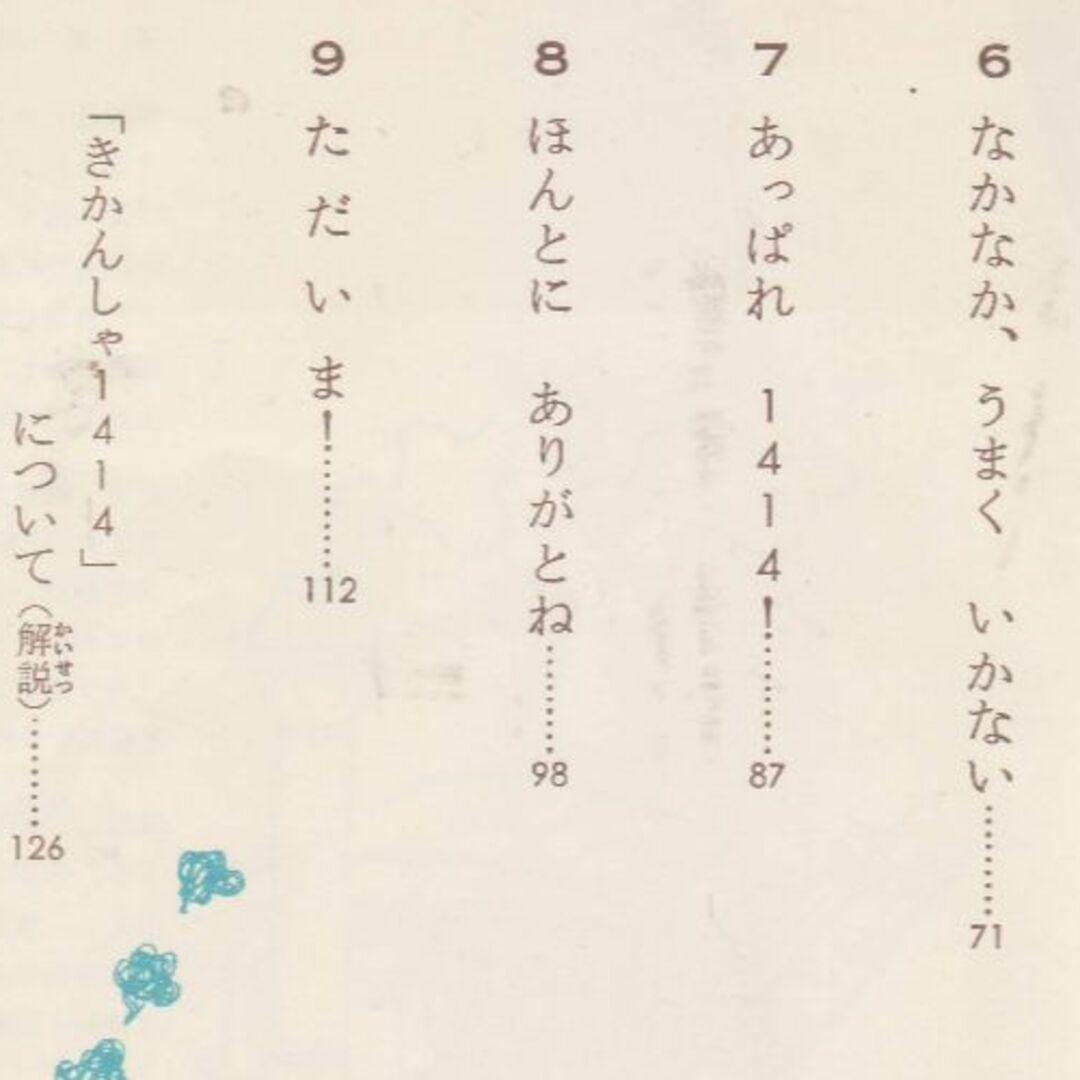 6 なかなか、 うまく いかない………71
7 あっぱれ 1414!………87
8 ほんとに ありがとね………98
9 ただいま!………112
「きかんしゃ1414」
について(解説)………126
かいせつ